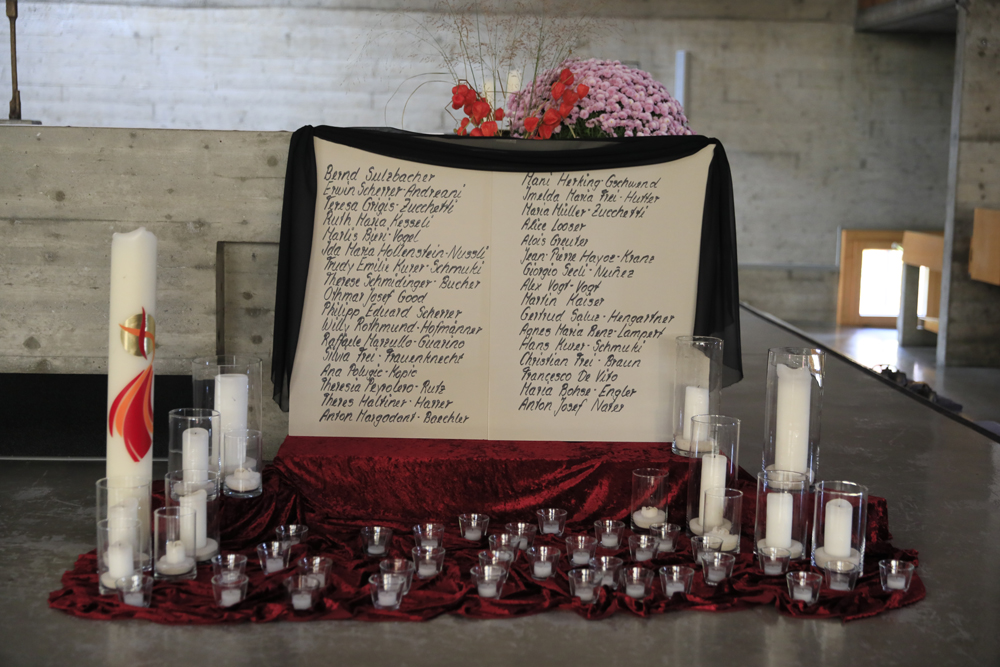 Bernd Sulzbacher
Erwin Scherrer-Andreani
Teresa Grigis-Zucchetti
Ruth Maria Kesseli
Marlis Bieri-Vogel
Ida Maria Hollenstein-Nussli
Trudy Emilie Kurer-Schmuki
Therese Schmidinger-Bucher
Othmar Josef Good
Philipp Eduard Scherrer
Willy Rothmund-Hofmänner
Raffaele Marzullo-Guarino
Silvia Frei-Frauenknecht
Ana Polugic-Kopic
Theresia Peyrolero-Rutz
Theres Haltiner-Harrer
Anton Margadant-Baechler
Mani Herking-Gschwend
Imelda Maria Frei-Hutter
Maria Müller-Zucchetti
Alice Looser
Alois Greuter
Jean-Pierre Hayoz-Kranz
Giorgio Secli-Nuñez
Alex Vogt-Vogt
Martin Kaiser
Gertrud Saluz-Hengartner
Agnes Maria Renz-Lampert
Hans Kurer-Schmuki
Christian Frei-Braun
Francesco De Vito
Maria Bohse-Engler
Anton Josef Nater